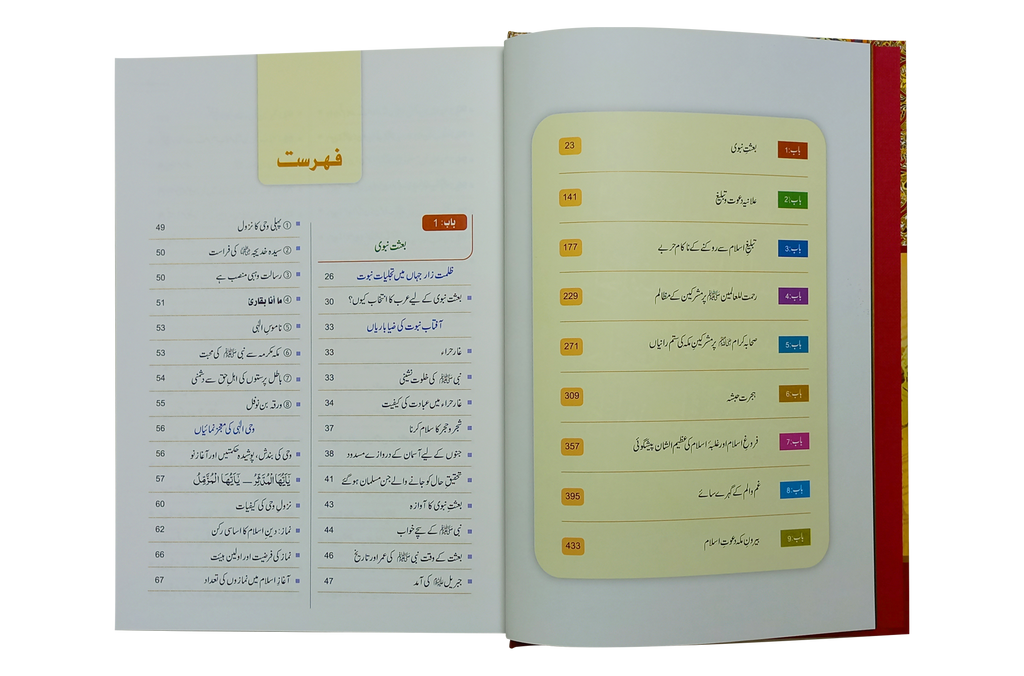 باب:1 بعثتِ نبوی 23
باب:2 علانیہ دعوت و تبلیغ 141
باب:3 تبلیغِ اسلام سے روکنے کے ناکام حربے 177
باب:4 رحمت للعالمین ﷺ پر مشرکین کے مظالم 229
باب:5 صحابہ کرام رضی اللہ عنہم پر مشرکینِ مکہ کی ستم رانیاں 271
باب:6 ہجرتِ حبشہ 309
باب:7 فروغِ اسلام اور غلبۂ اسلام کی عظیم الشان پیشگوئی 357
باب:8 غم و الم کے گہرے سائے 395
باب:9 بیرونِ مکہ دعوتِ اسلام 433
فہرست
باب: 1
بعثت نبوی
ظلمت زار جہاں میں تجلیات نبوت 26
بعثت نبوی کے لیے عرب کا انتخاب کیوں؟ 30
آفتاب نبوت کی ضیا باریاں 33
غار حراء 33
نبی ﷺ کی خلوت نشینی 33
غار حراء میں عبادت کی کیفیت 34
شجر و حجر کا سلام کرنا 37
جنوں کے لیے آسمان کے دروازے مسدود 38
تحقیق حال کو جانے والے جن مسلمان ہو گئے 41
بعثت نبوی کا آوازہ 43
نبی ﷺ کے سچے خواب 44
بعثت کے وقت نبی ﷺ کی عمر اور تاریخ 46
جبریل علیہ السلام کی آمد 47
① پہلی وحی کا نزول 49
② سیدہ خدیجہ رضی اللہ عنہا کی فراست 50
③ رسالت وہبی منصب ہے 50
④ ما أنا بقارئ 51
⑤ ناموسِ الٰہی 53
⑥ مکہ مکرمہ سے نبی ﷺ کی محبت 53
⑦ باطل پرستوں کی اہلِ حق سے دشمنی 54
⑧ ورقہ بن نوفل 55
وحی الٰہی کی معجز نمائیاں 56
وحی کی بندش، پوشیدہ حکمتیں اور آغازِ نو 56
يَٰٓأَيُّهَا الْمُدَّثِّرُ — يَٰٓأَيُّهَا الْمُزَّمِّلُ 57
نزول وحی کی کیفیات 60
نماز: دینِ اسلام کا اساسی رکن 62
نماز کی فرضیت اور اولین ہیئت 66
آغازِ اسلام میں نمازوں کی تعداد 67